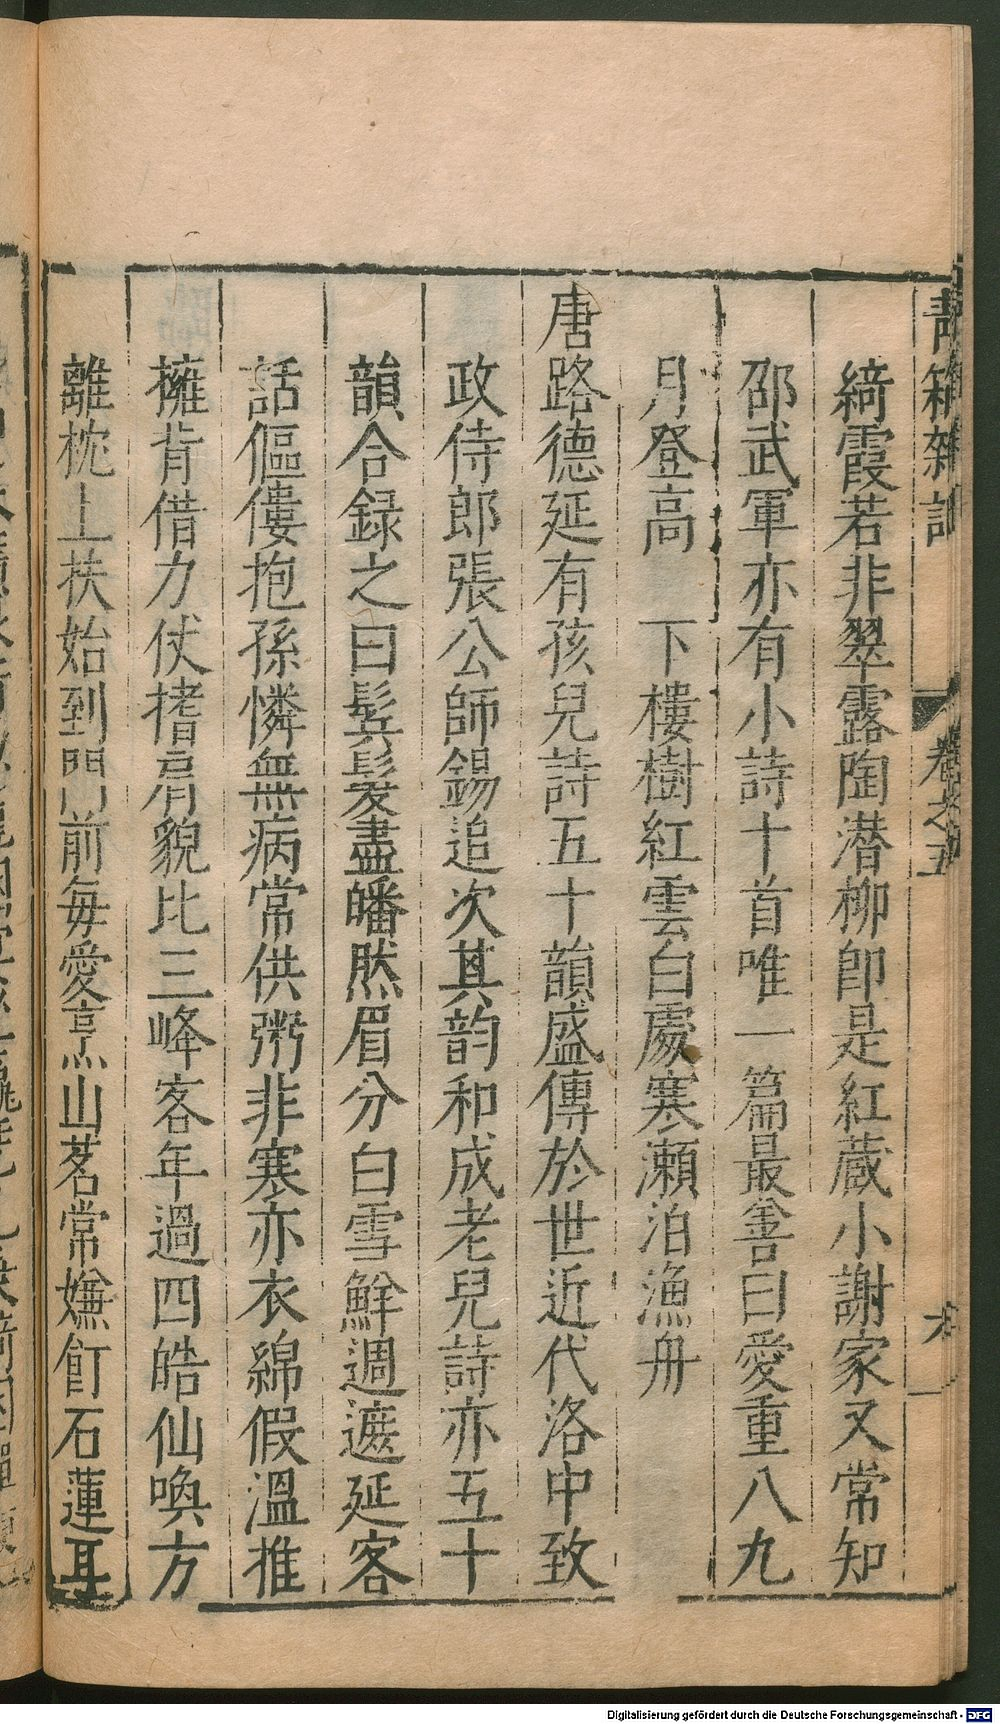 青箱雜記 卷之五 六
綺霞若非翠露陶潜柳卽是紅蔵小謝家又常知
邵武軍亦有小詩十首唯一篇最善曰愛重八九
月登高 下樓樹紅雲白處寒瀬泊漁舟
唐路德延有孩兒詩五十韻盛傳於世近代洛中致
政侍郎張公師錫追次其韵和成老兒詩亦五十
韻合録之曰鬂髮盡皤然眉分白雪鮮週遮延客
話傴僂抱孫憐無病常供粥非寒亦衣綿假溫推
擁背借力仗搘肩貌比三峰客年過四皓仙喚方
離枕上扶始到門前每愛烹山茗常嫌飣石蓮耳
Digitalisierung gefördert durch die Deutsche Forschungsgemeinschaft - DFG